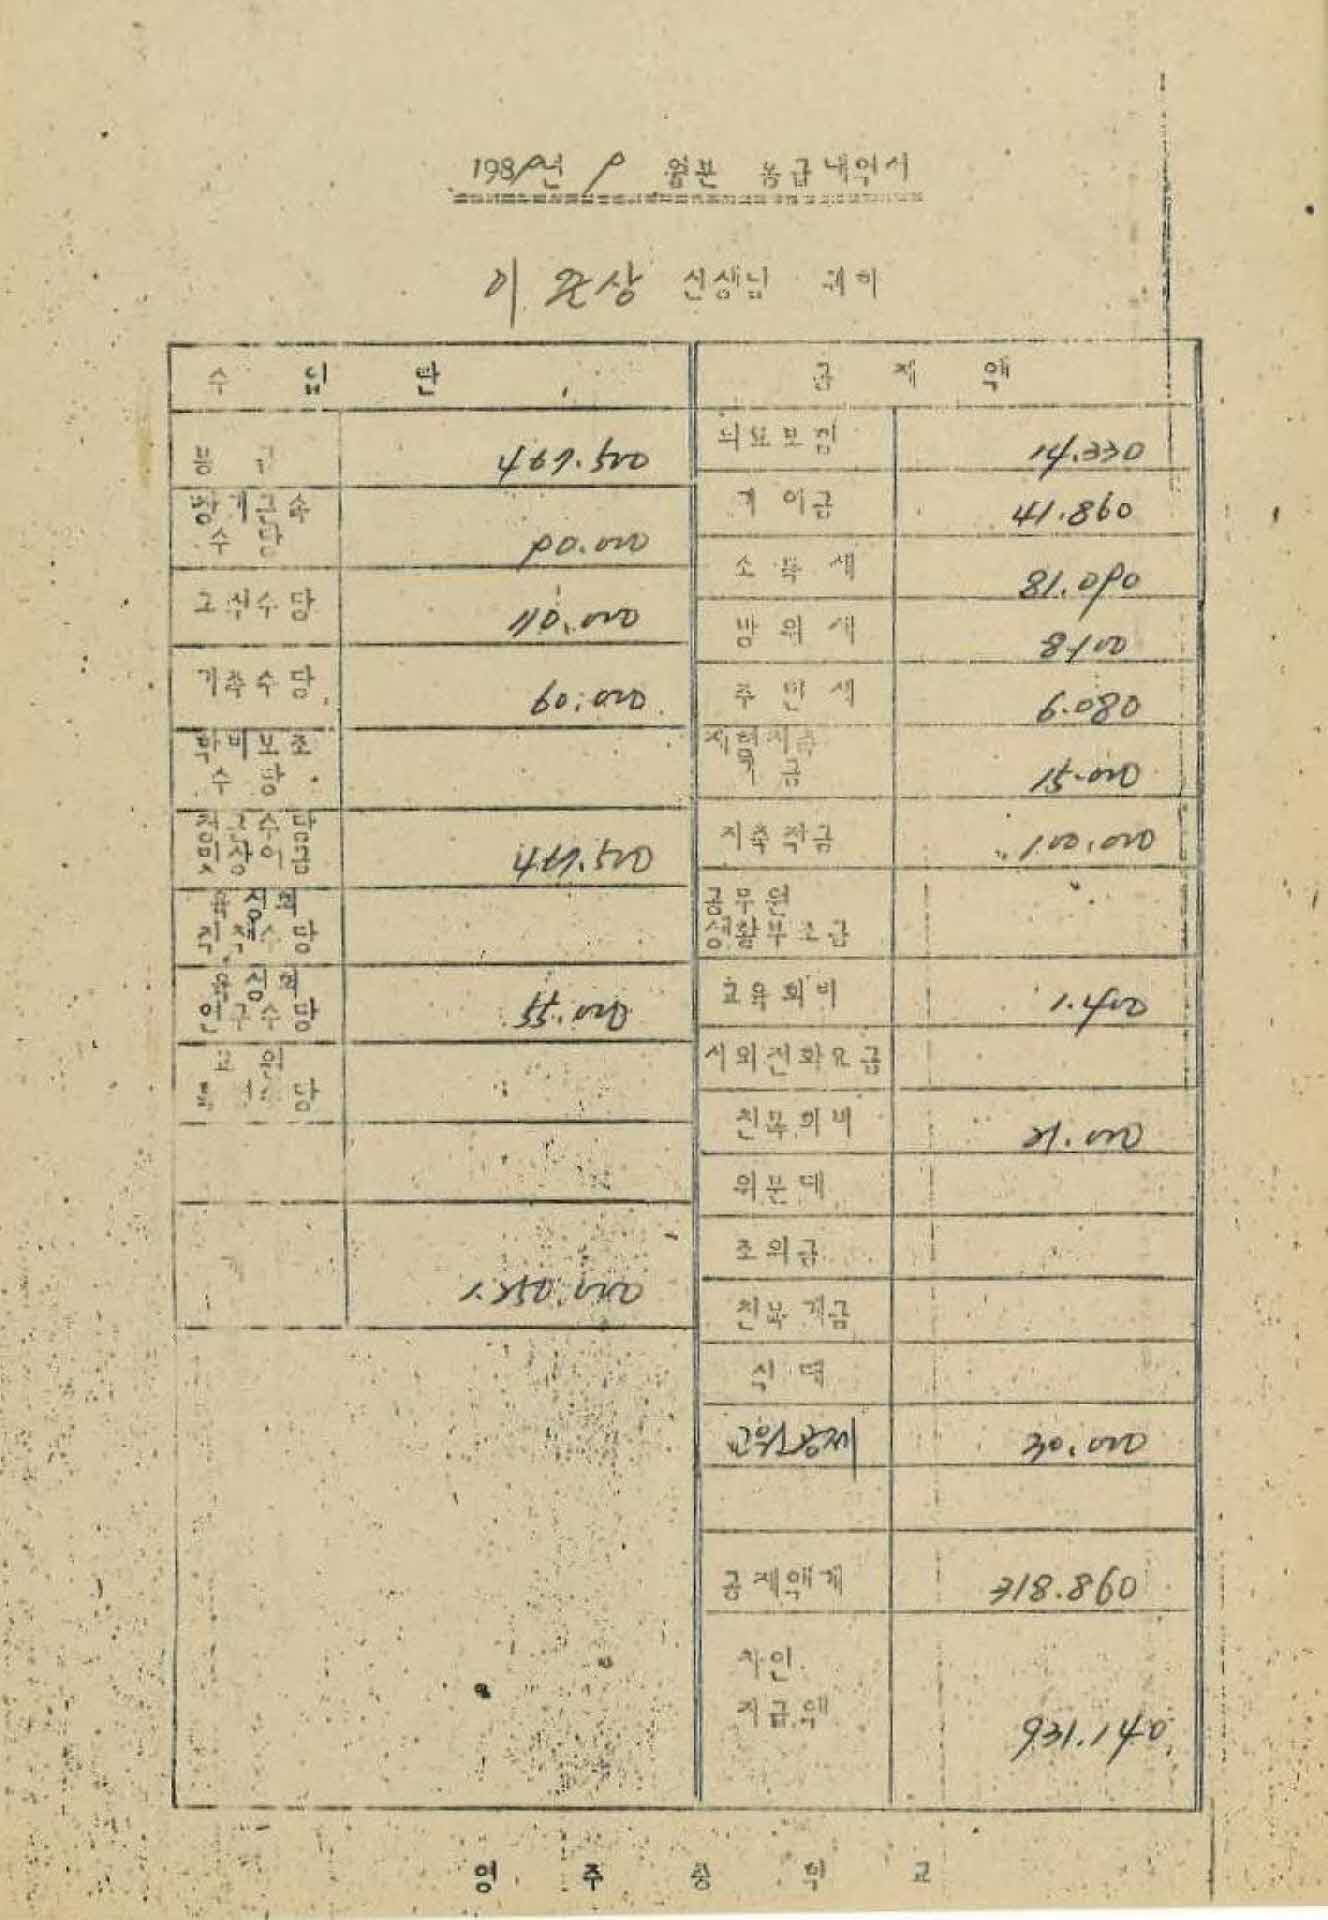 1989년 9 월분 봉급내역서
이 선생님 귀하
수 입 란
공 제 액
봉 급 467.500
장기근속
수 당 90.000
교직수당 110.000
가족수당 60.000
학비보조
수 당
정근수당
및상여금 467.500
육성회
직책수당
육성회
연구수당 55.000
교원
수당
1.250.000
의료보험 14.330
기여금 41.860
소득세 81.090
방위세 8100
주민세 6.080
재형저축
금 15.000
저축적금 100.000
공무원
생활부조금
교육회비 1.400
시외전화요금
친목회비 21.000
위문대
조의금
친목계금
식대
교원공제 30.000
공제액계 318.860
차인
지급액 931.140
영 주 중 학 교